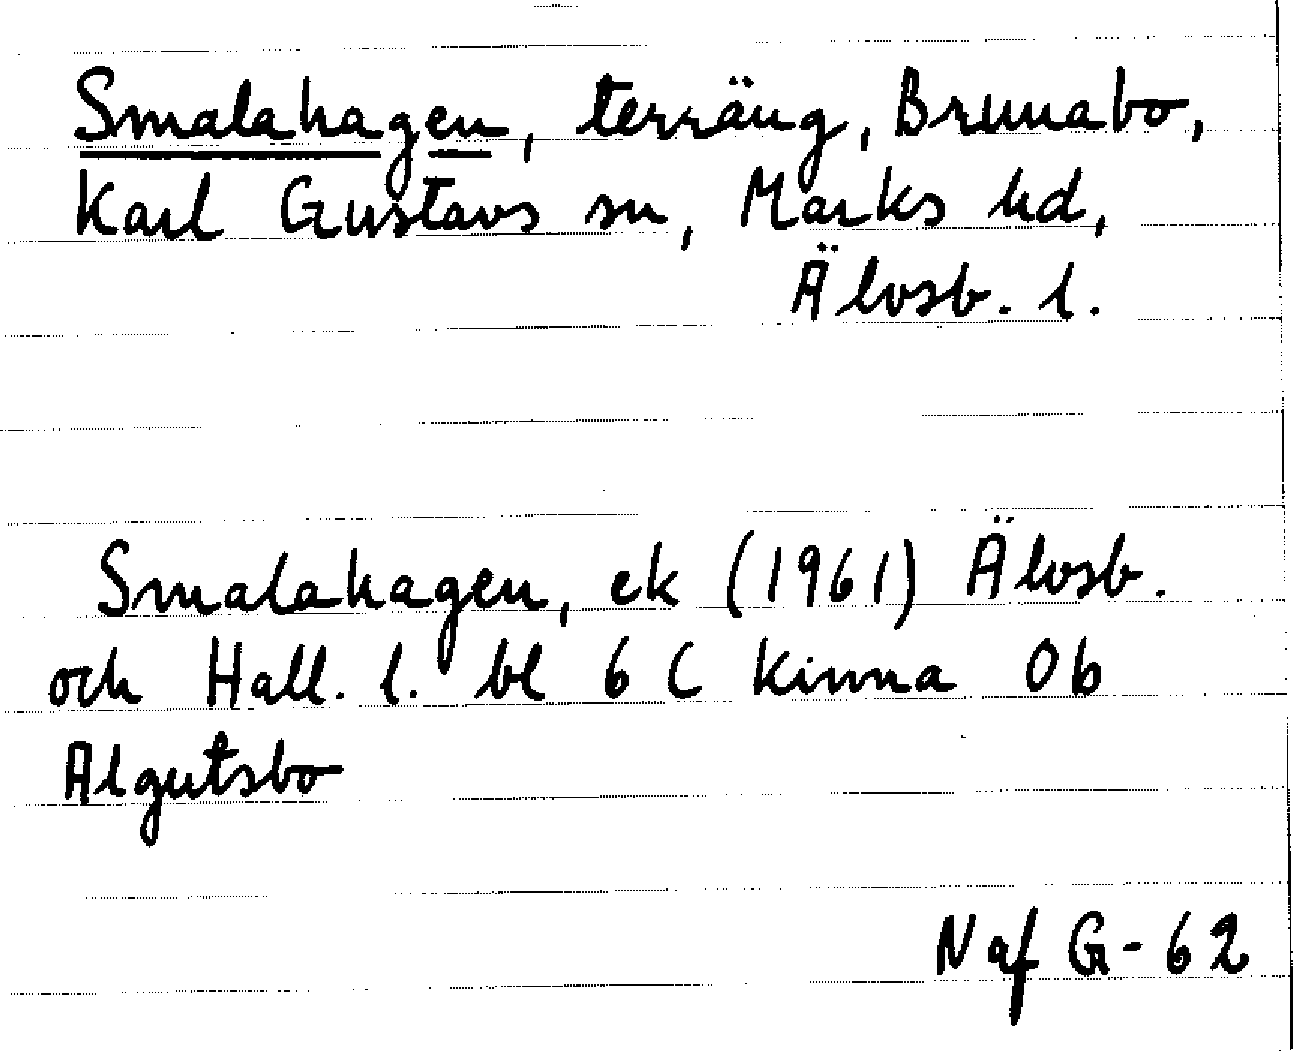 Smalahagen, terräng, Brunabo,
Karl Gustavs sn, Marks hd,
Älvsb. l.
Smalahagen, ek (1961) Älvsb.
och Hall. l. bl 6 C Kinna 0b
Algutsbo
N af G - 62